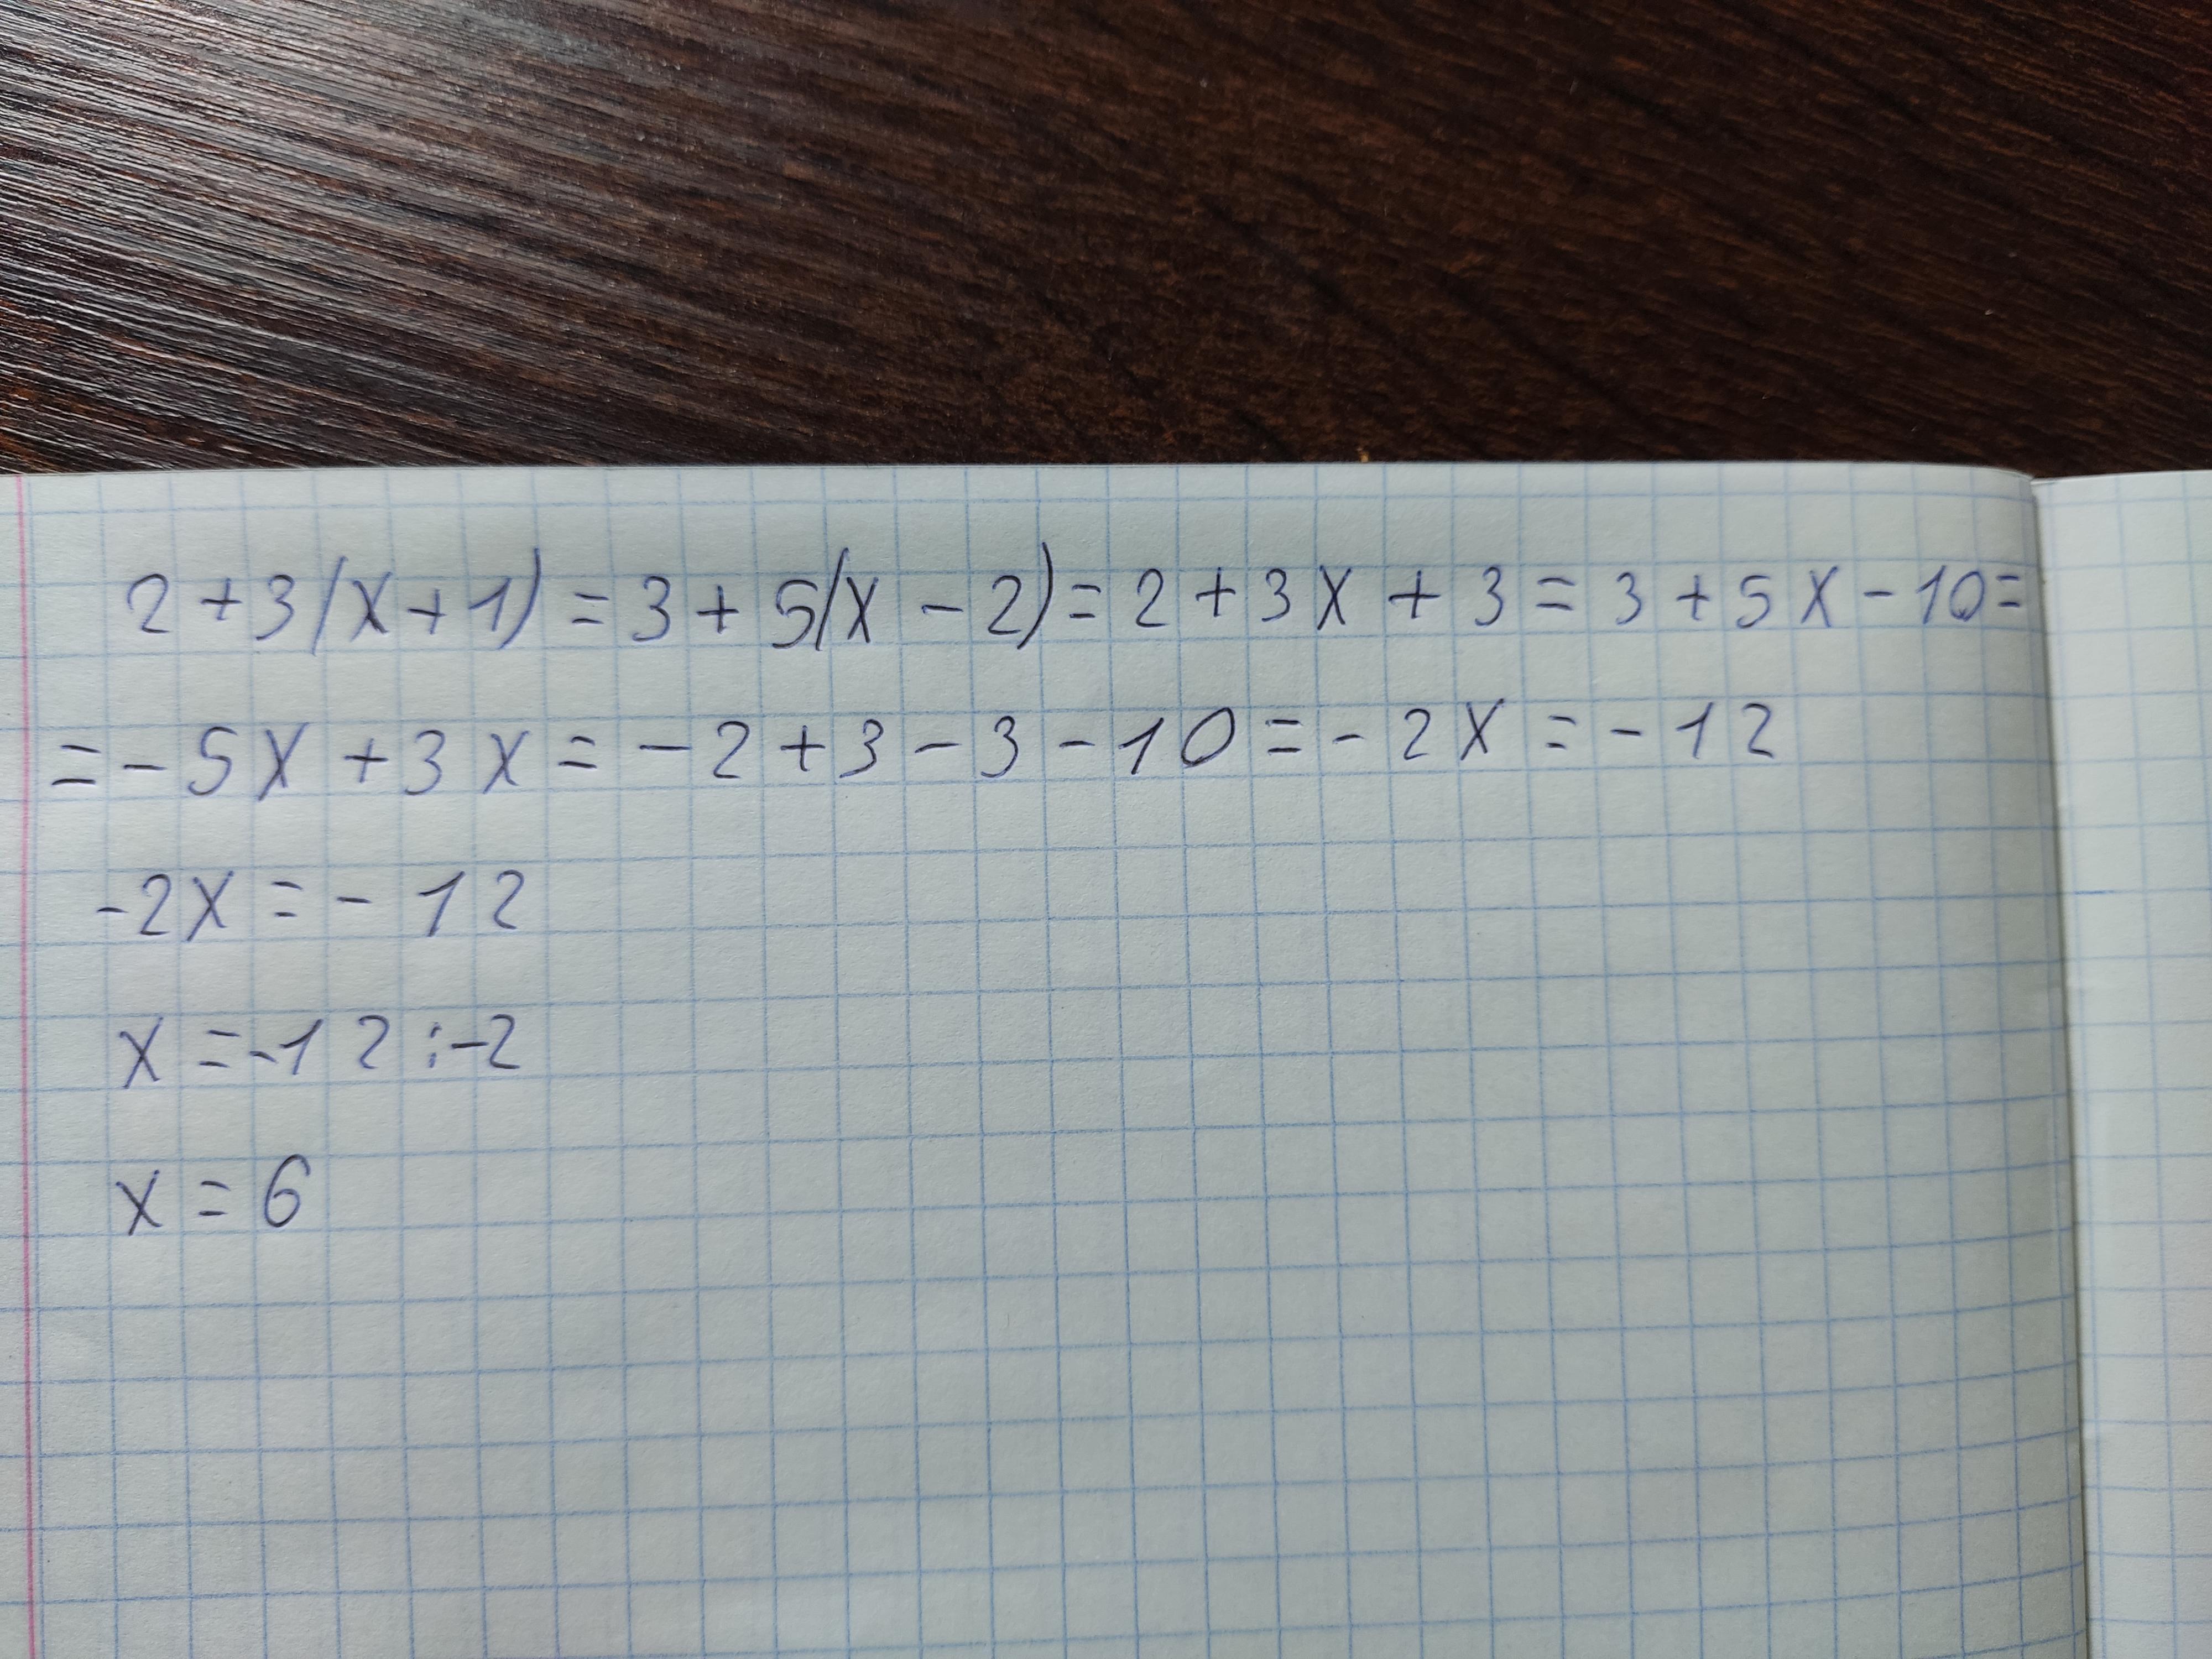 2+3(x+1)=3+5(x-2)=2+3x+3=3+5x-10=
=-5x+3x=-2+3-3-10=-2x=-12
-2x=-12
x=-12:-2
x=6